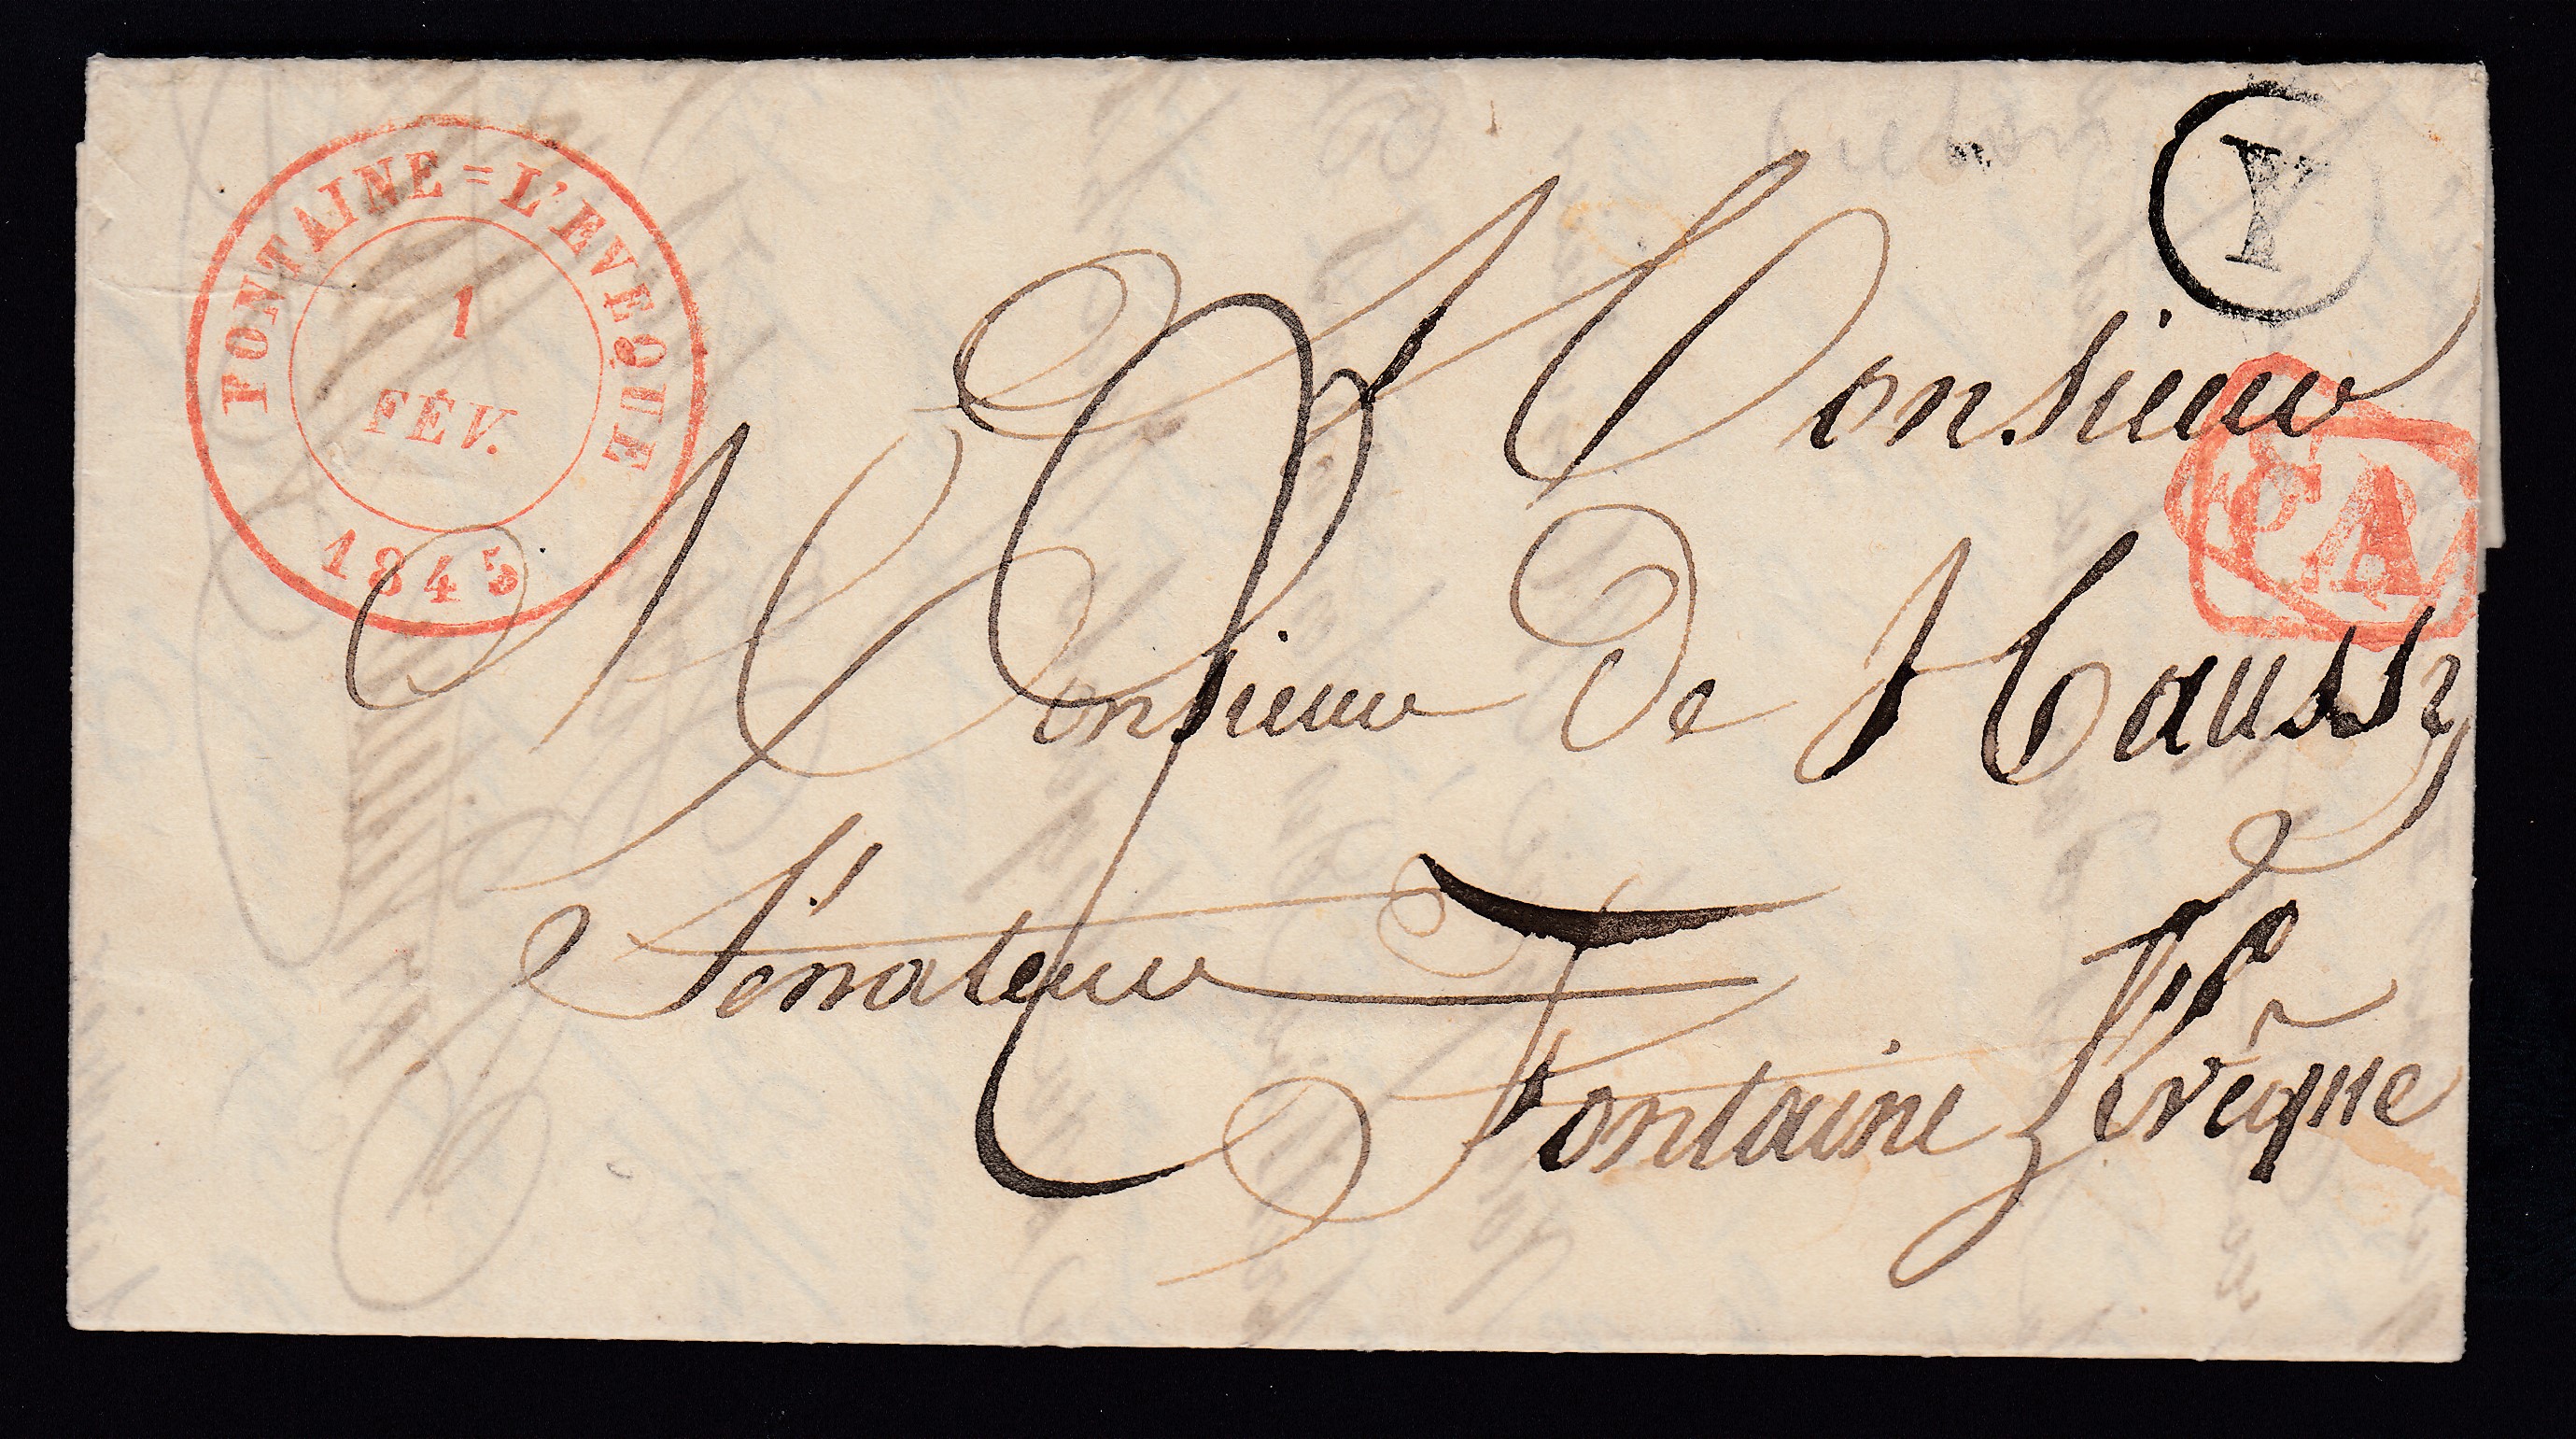 FONTAINE = L'EVEQUE
1
FÉV.
1845
Y
CA
Monsieur
Monsieur De Haussy
Sénateur
Fontaine Levêque